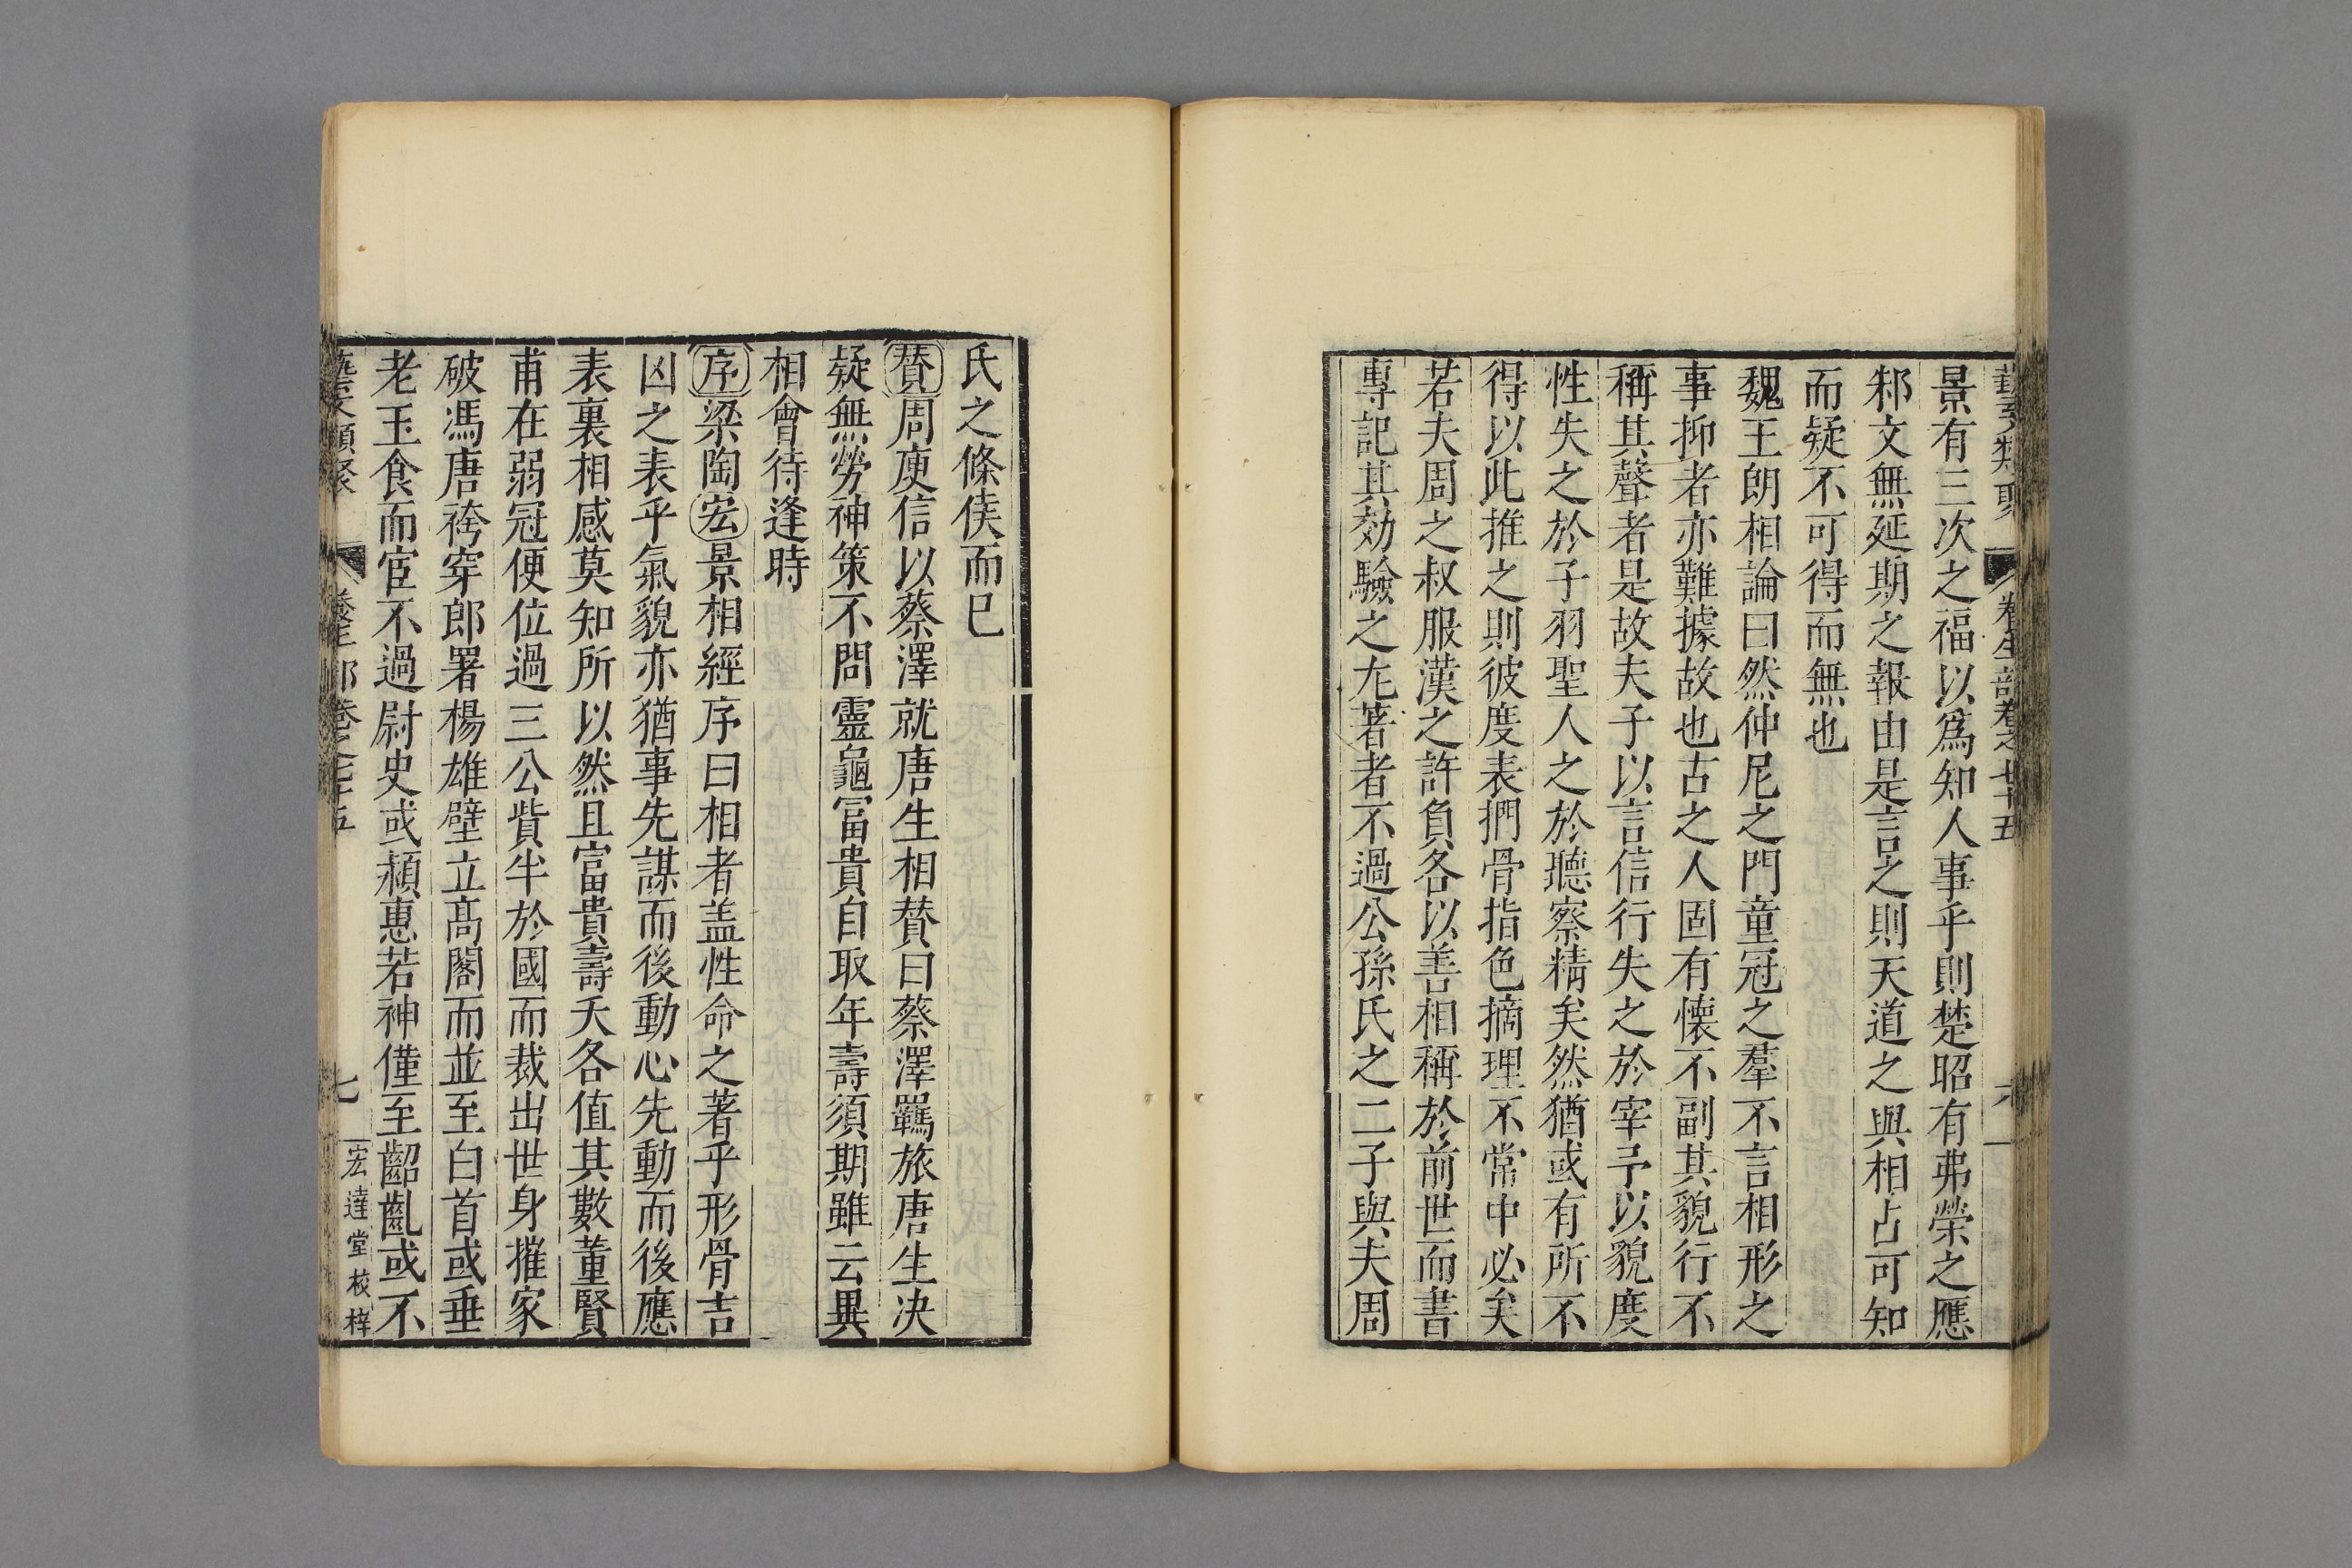 藝文類聚 養生部卷之七十五 六
景有三次之福以爲知人事乎則楚昭有弗禜之應
邾文無延期之報由是言之則天道之與相占可知
而疑不可得而無也
魏王朗相論曰然仲尼之門童冠之羣不言相形之
事抑者亦難據故也古之人固有懷不副其貌行不
稱其聲者是故夫子以言信行失之於宰予以貌度
性失之於子羽聖人之於聽察精矣然猶或有所不
得以此推之則彼度表捫骨指色摘理不常中必矣
若夫周之叔服漢之許負各以善相稱於前世而書
專記其効驗之尤著者不過公孫氏之二子與夫周
氏之條侯而已
贊周庾信以蔡澤就唐生相贊曰蔡澤羈旅唐生决
疑無勞神策不問靈龜冨貴自取年壽須期雖云異
相會待逢時
序梁陶宏景相經序曰相者盖性命之著乎形骨吉
凶之表乎氣貌亦猶事先謀而後動心先動而後應
表裏相感莫知所以然且富貴壽夭各值其數董賢
甫在弱冠便位過三公貲半於國而裁出世身摧家
破馮唐袴穿郎署楊雄壁立高閣而並至白首或垂
老玉食而宦不過尉史或頳惠若神僅至齠齓或不
藝文類聚 養生部卷之七十五 七 宏達堂校梓